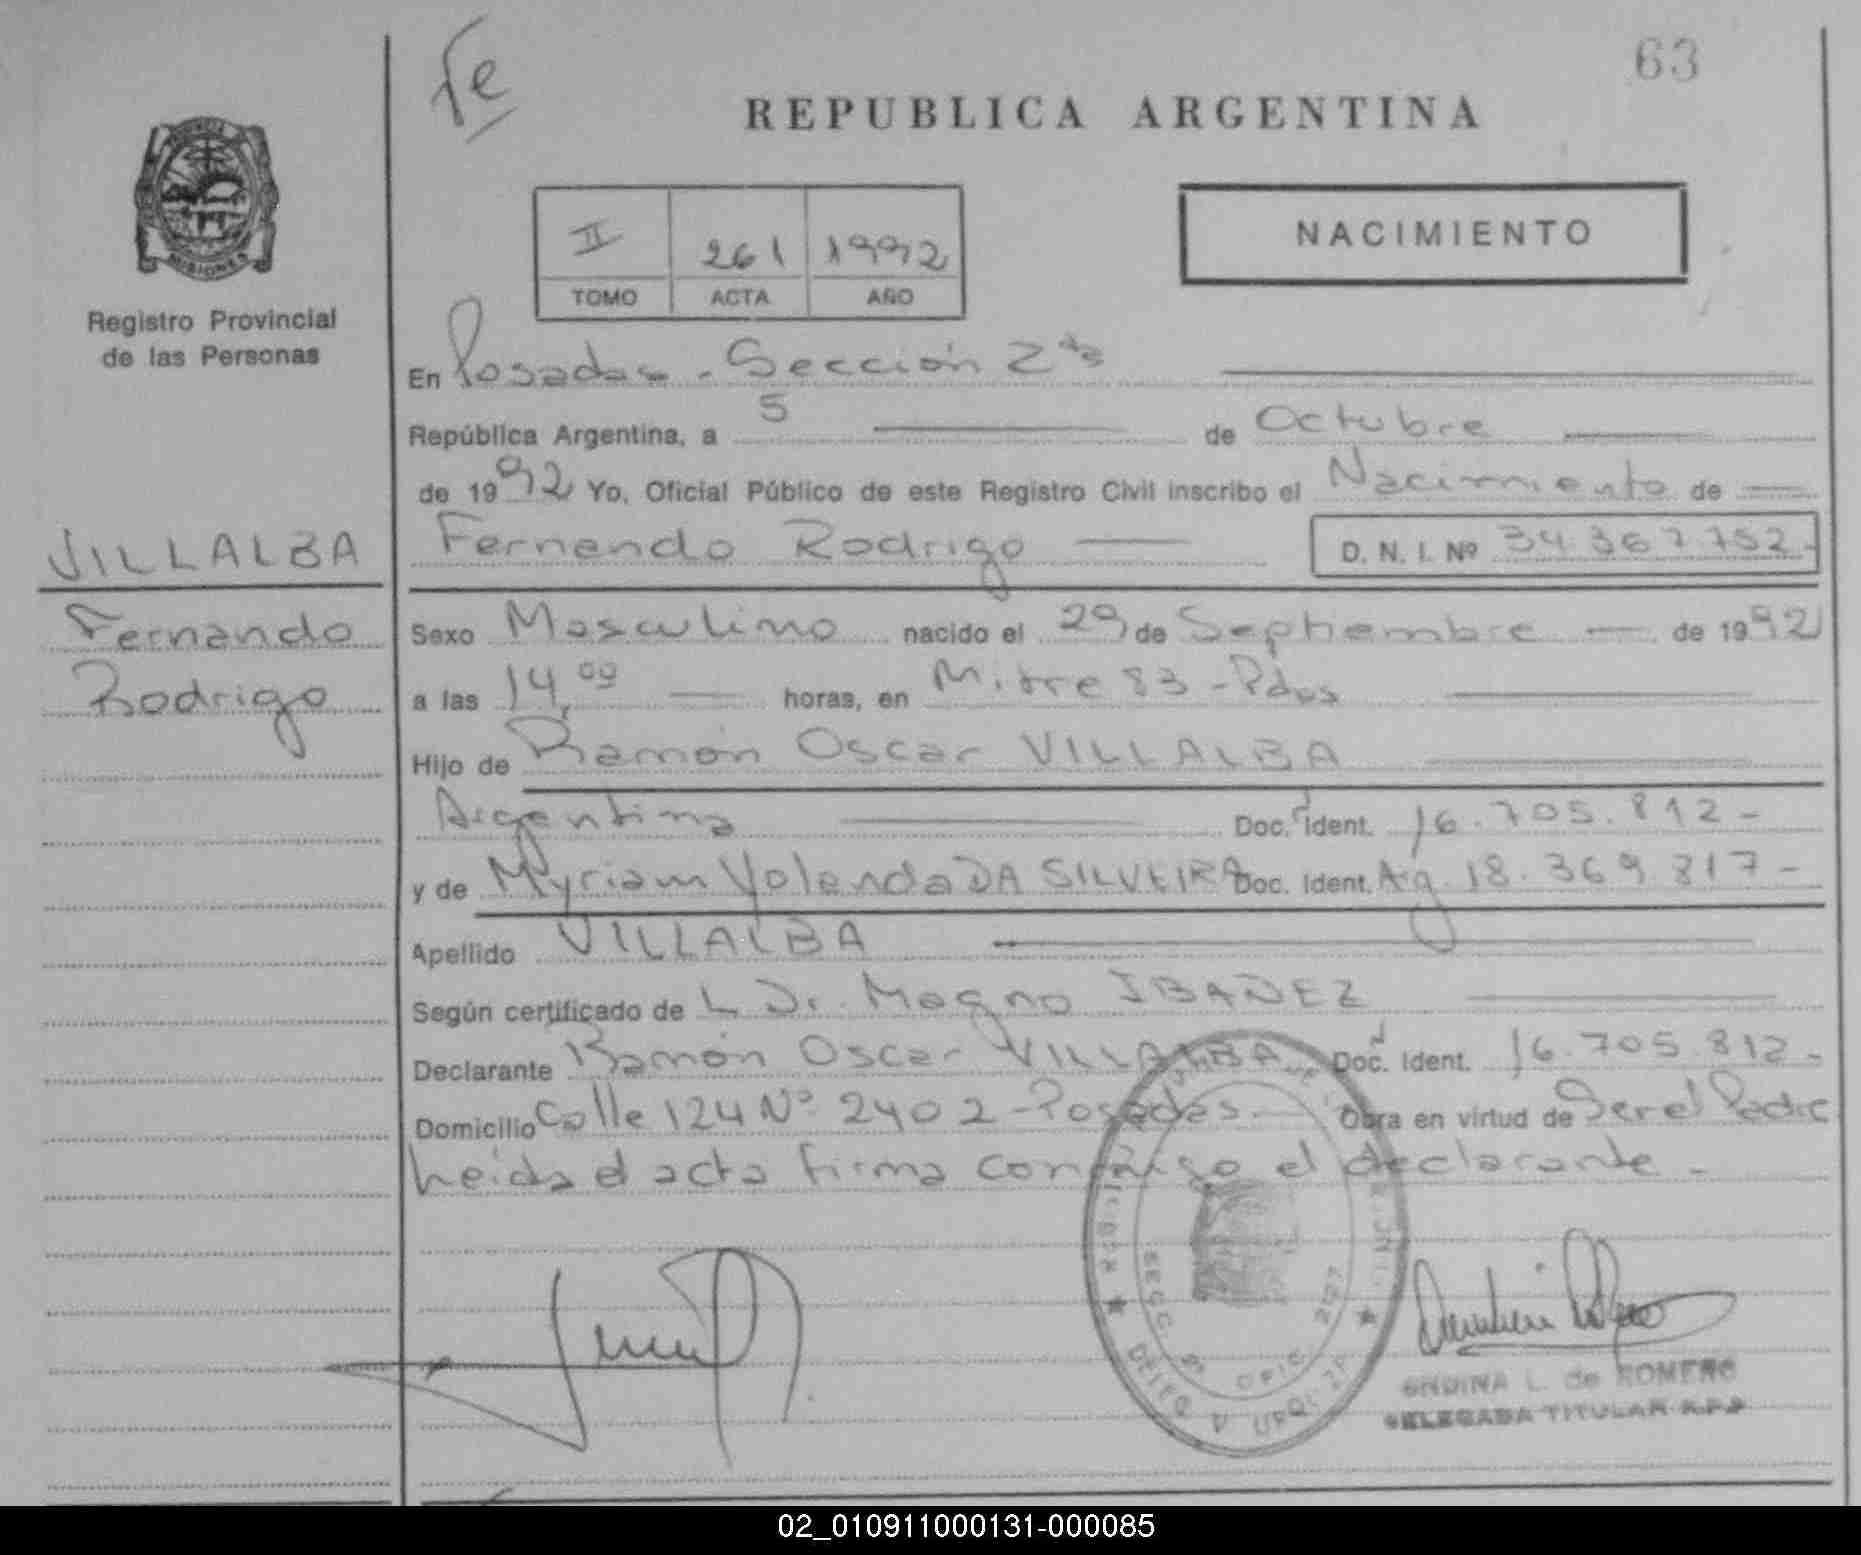 Fe
63
REPUBLICA ARGENTINA
II 261 1992
TOMO ACTA AÑO
NACIMIENTO
MISIONES
Registro Provincial
de las Personas
En Posadas - Sección 2da
República Argentina, a 5 de Octubre
de 1992 Yo, Oficial Público de este Registro Civil inscribo el Nacimiento de
Fernando Rodrigo D. N. I. Nº 34.367.752-
VILLALBA
Fernando
Rodrigo
Sexo Masculino nacido el 29 de Septiembre de 1992
a las 14,00 horas, en Mitre 83 - Pdas
Hijo de Ramón Oscar VILLALBA
Argentina Doc. Ident. 16.705.812-
y de Myriam Yolanda DA SILVEIRA Doc. Ident. Arg. 18.369.817-
Apellido VILLALBA
Según certificado de L Dr. Magno IBAÑEZ
Declarante Ramón Oscar VILLALBA Doc. Ident. 16.705.812-
Domicilio Calle 124 Nº 2402 - Posadas - Obra en virtud de Ser el Padre
Leída el acta firma conmigo el declarante -
SECC. 2ª OFIC.
ONDINA L. de ROMERO
DELEGADA TITULAR R.P.P
02_010911000131-000085